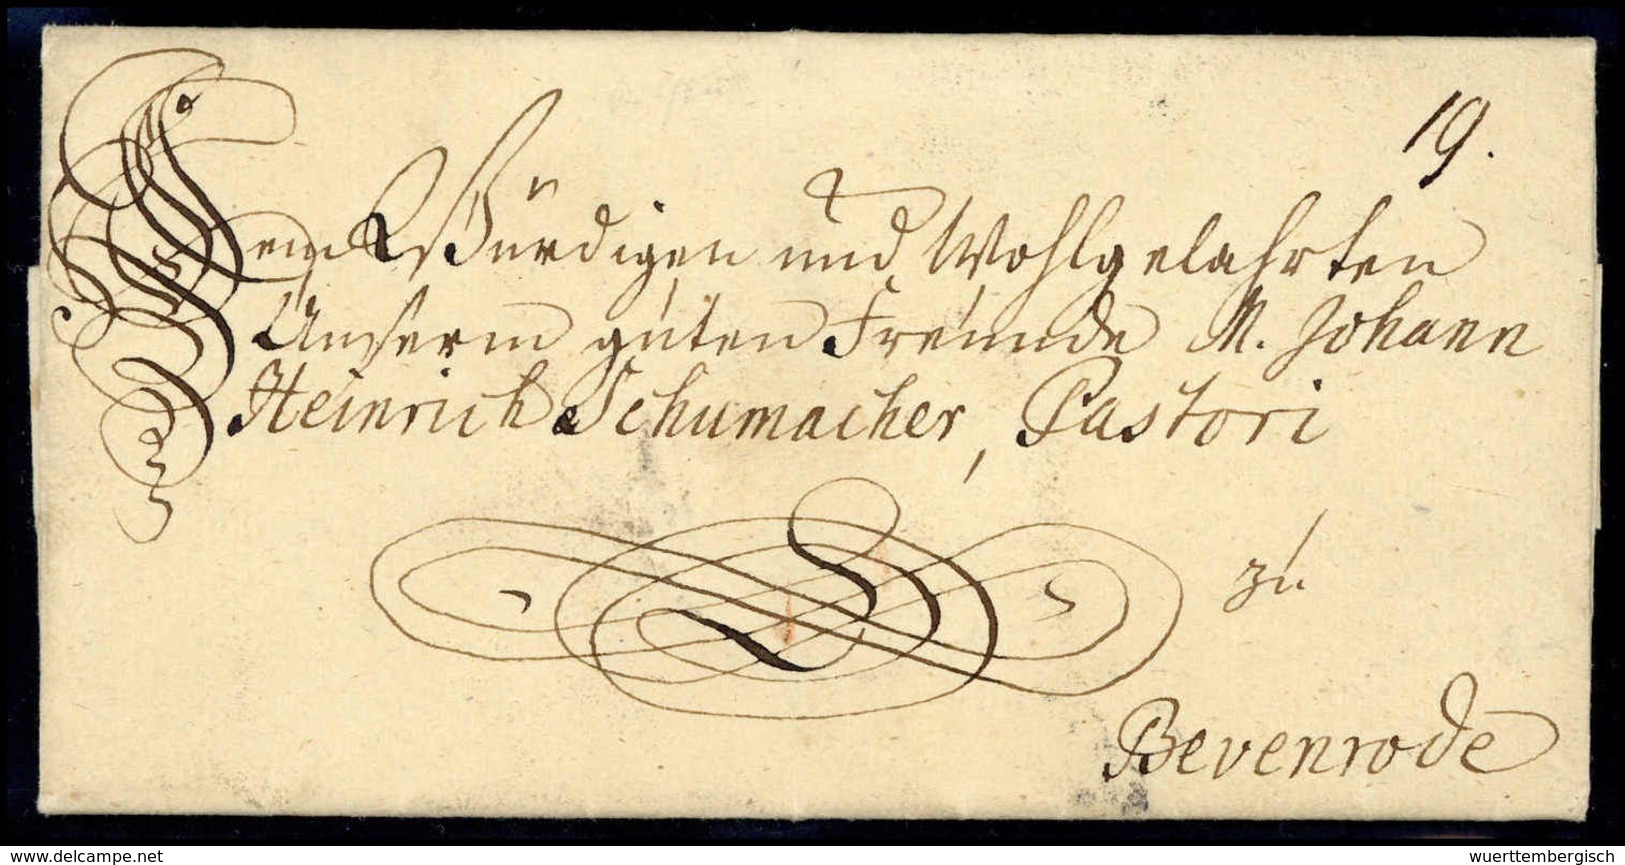 19.
Dem Würdigen und Wohlgelahrten
Unserm guten Freunde M. Johann
Heinrich Schumacher, Pastori
zu
Bevenrode
delcampe.net
wuerttembergisch